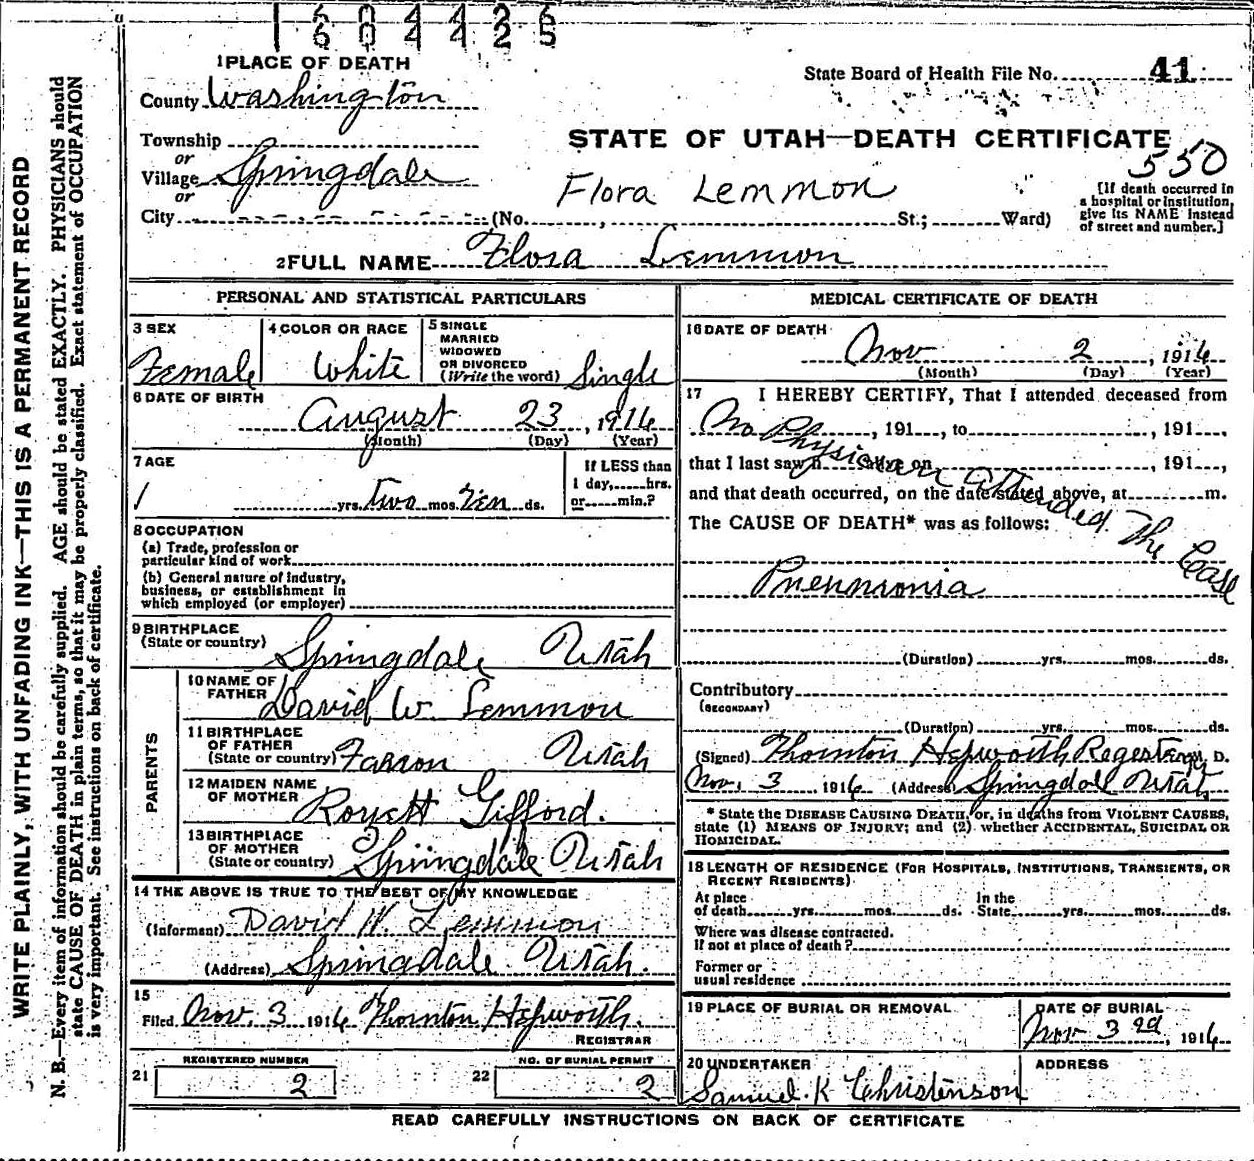 1604426
60442 5
1 PLACE OF DEATH
State Board of Health File No. 41
County Washington
STATE OF UTAH—DEATH CERTIFICATE
550
Township
or
Village Springdale
or
Flora Lemmon
[If death occurred in
a hospital or institution,
give its NAME instead
of street and number.]
City (No. , St.; Ward)
2 FULL NAME Flora Lemmon
PERSONAL AND STATISTICAL PARTICULARS
3 SEX
Female
4 COLOR OR RACE
White
5 SINGLE
MARRIED
WIDOWED
OR DIVORCED
(Write the word) Single
6 DATE OF BIRTH
August 23, 1916
(Month) (Day) (Year)
7 AGE
yrs. two mos. Ten ds.
If LESS than
1 day, hrs.
or min.?
8 OCCUPATION
(a) Trade, profession or
particular kind of work
(b) General nature of industry,
business, or establishment in
which employed (or employer)
9 BIRTHPLACE
(State or country) Springdale Utah
PARENTS
10 NAME OF
FATHER David W. Lemmon
11 BIRTHPLACE
OF FATHER
(State or country) Farron Utah
12 MAIDEN NAME
OF MOTHER Royett Gifford.
13 BIRTHPLACE
OF MOTHER
(State or country) Springdale Utah
14 THE ABOVE IS TRUE TO THE BEST OF MY KNOWLEDGE
(Informant) David W. Lemmon
(Address) Springdale Utah.
15
Filed Nov. 3 1916 Thornton Hepworth.
REGISTRAR
REGISTERED NUMBER
21 2
NO. OF BURIAL PERMIT
22 2
MEDICAL CERTIFICATE OF DEATH
16 DATE OF DEATH
Nov 2, 1916
(Month) (Day) (Year)
17 I HEREBY CERTIFY, That I attended deceased from
, 191 , to , 191 ,
No Physician attended The Case
that I last saw h alive on , 191 ,
and that death occurred, on the date stated above, at m.
The CAUSE OF DEATH* was as follows:
Pneumonia
(Duration) yrs. mos. ds.
Contributory
(SECONDARY)
(Duration) yrs. mos. ds.
(Signed) Thornton Hepworth Regestrar M. D.
Nov. 3 1916 (Address) Springdale Utah
* State the DISEASE CAUSING DEATH, or, in deaths from VIOLENT CAUSES,
state (1) MEANS OF INJURY; and (2) whether ACCIDENTAL, SUICIDAL OR
HOMICIDAL.
18 LENGTH OF RESIDENCE (FOR HOSPITALS, INSTITUTIONS, TRANSIENTS, OR
RECENT RESIDENTS).
At place
of death yrs. mos. ds.
In the
State yrs. mos. ds.
Where was disease contracted.
if not at place of death?
Former or
usual residence
19 PLACE OF BURIAL OR REMOVAL
DATE OF BURIAL
Nov 3rd, 1916
20 UNDERTAKER
Samuel K Christenson
ADDRESS
READ CAREFULLY INSTRUCTIONS ON BACK OF CERTIFICATE
WRITE PLAINLY, WITH UNFADING INK—THIS IS A PERMANENT RECORD
N. B.—Every item of information should be carefully supplied. AGE should be stated EXACTLY. PHYSICIANS should
state CAUSE OF DEATH in plain terms, so that it may be properly classified. Exact statement of OCCUPATION
is very important. See instructions on back of certificate.